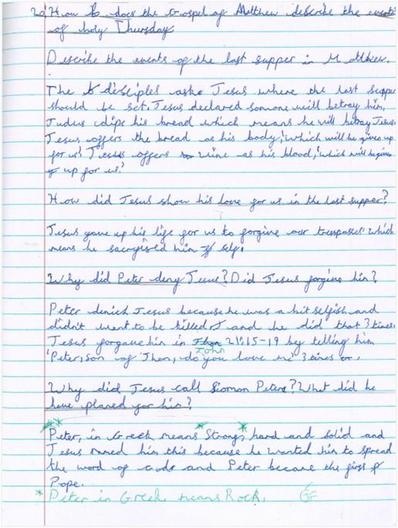 How does the Gospel of Matthew describe the events
of holy Thursday
Describe the events of the last supper in Matthew.
The disciples asks Jesus where the last supper
should be set. Jesus declared somone will betray him,
Judus dips his bread which means he will betray Jesus.
Jesus offers the bread as his body, 'which will be given up
for us' Jesus offers wine as his blood, 'which will be given
up for us.'
How did Jesus show his love for us in the last supper?
Jesus gave up his life for us to forgive 'our trespasses' which
means he sacrifised him self.
Why did Peter deny Jesus? Did Jesus forgive him?
Peter denied Jesus because he was a bit selfish and
didn't want to be killed and he did that 3 times.
Jesus forgave him in John 21:15-19 by telling him
'Peter, son of Jhon, do you love me' 3 times
Why did Jesus call Siomon Peter? What did he
have planed for him?
Peter, in Greek means Strong, hard and solid and
Jesus named him this because he wanted him to spread
the word of Gods and Peter became the first
Pope.
* Peter in Greek means Rock.